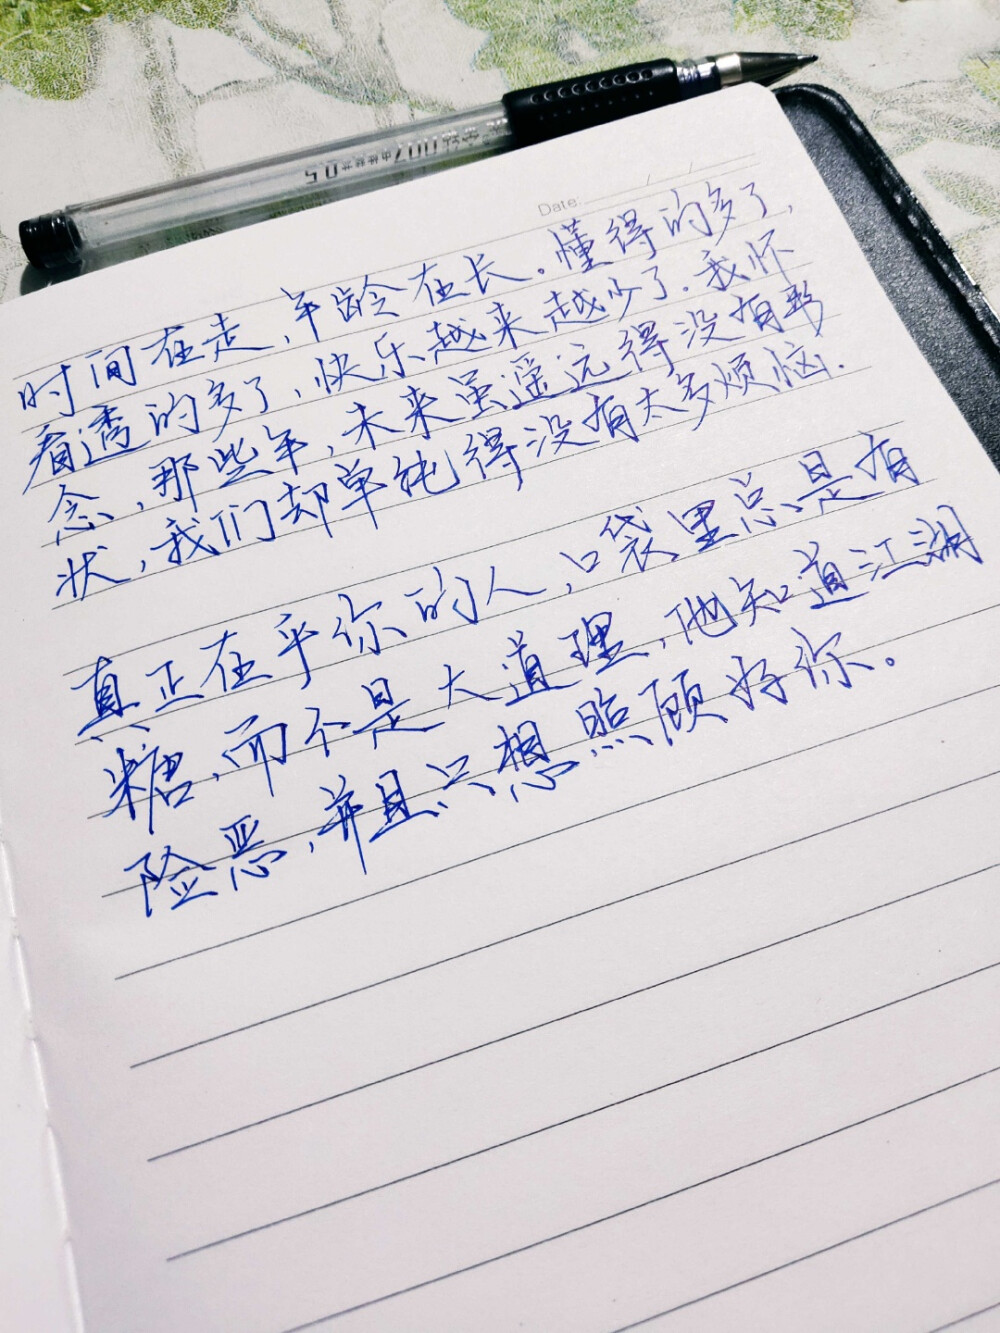 Date: / /
时间在走,年龄在长.懂得的多了,
看透的多了,快乐越来越少了.我怀
念,那些年,未来虽遥远得没有形
状,我们却单纯得没有太多烦恼.
真正在乎你的人,口袋里总是有
糖,而不是大道理,他知道江湖
险恶,并且只想照顾好你。